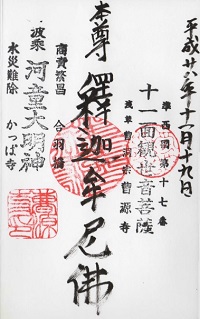 平成廿八年十一月十九日
準西国第十七番
十一面観世音菩薩
浅草曹洞宗曹源寺
本尊
釋迦牟尼佛
商賣繁昌 合羽橋
波乗 河童大明神
水災難除 かっぱ寺